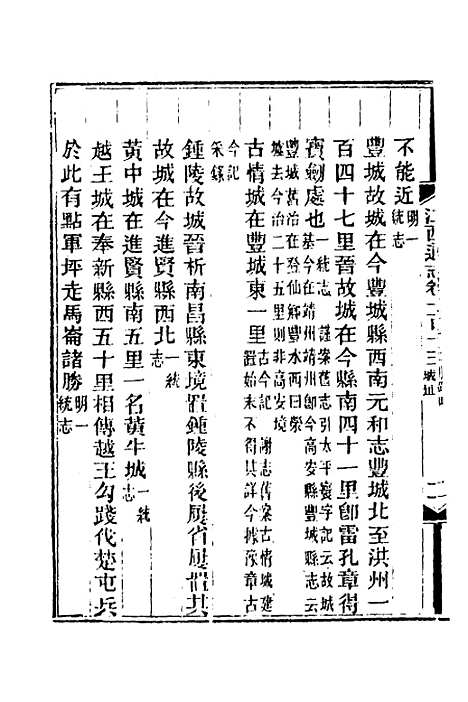 不能近明一統志
豐城故城在今豐城縣西南元和志豐城北至洪州一
百四十七里晉故城在今縣南四十一里卽雷孔章得
寶劍處也一統志 謹案舊志引太平寰宇記云故城
基今在靖州靖州卽今高安縣豐城縣志云
豐城舊治在登仙鄉豐水西曰榮
墟去今治二十五里則非高安境
古情城在豐城東一里古今記 謝志舊案古情城建
置始末不得其詳今據豫章古
今記
采錄
鍾陵故城晉析南昌縣東境置鍾陵縣後屢省屢置其
故城在今進賢縣西北一統志
黃中城在進賢縣南五里一名黃牛城一統志
越王城在奉新縣西五十里相傳越王勾踐伐楚屯兵
於此有點軍坪走馬崙諸勝明一統志
江西通志卷
城址